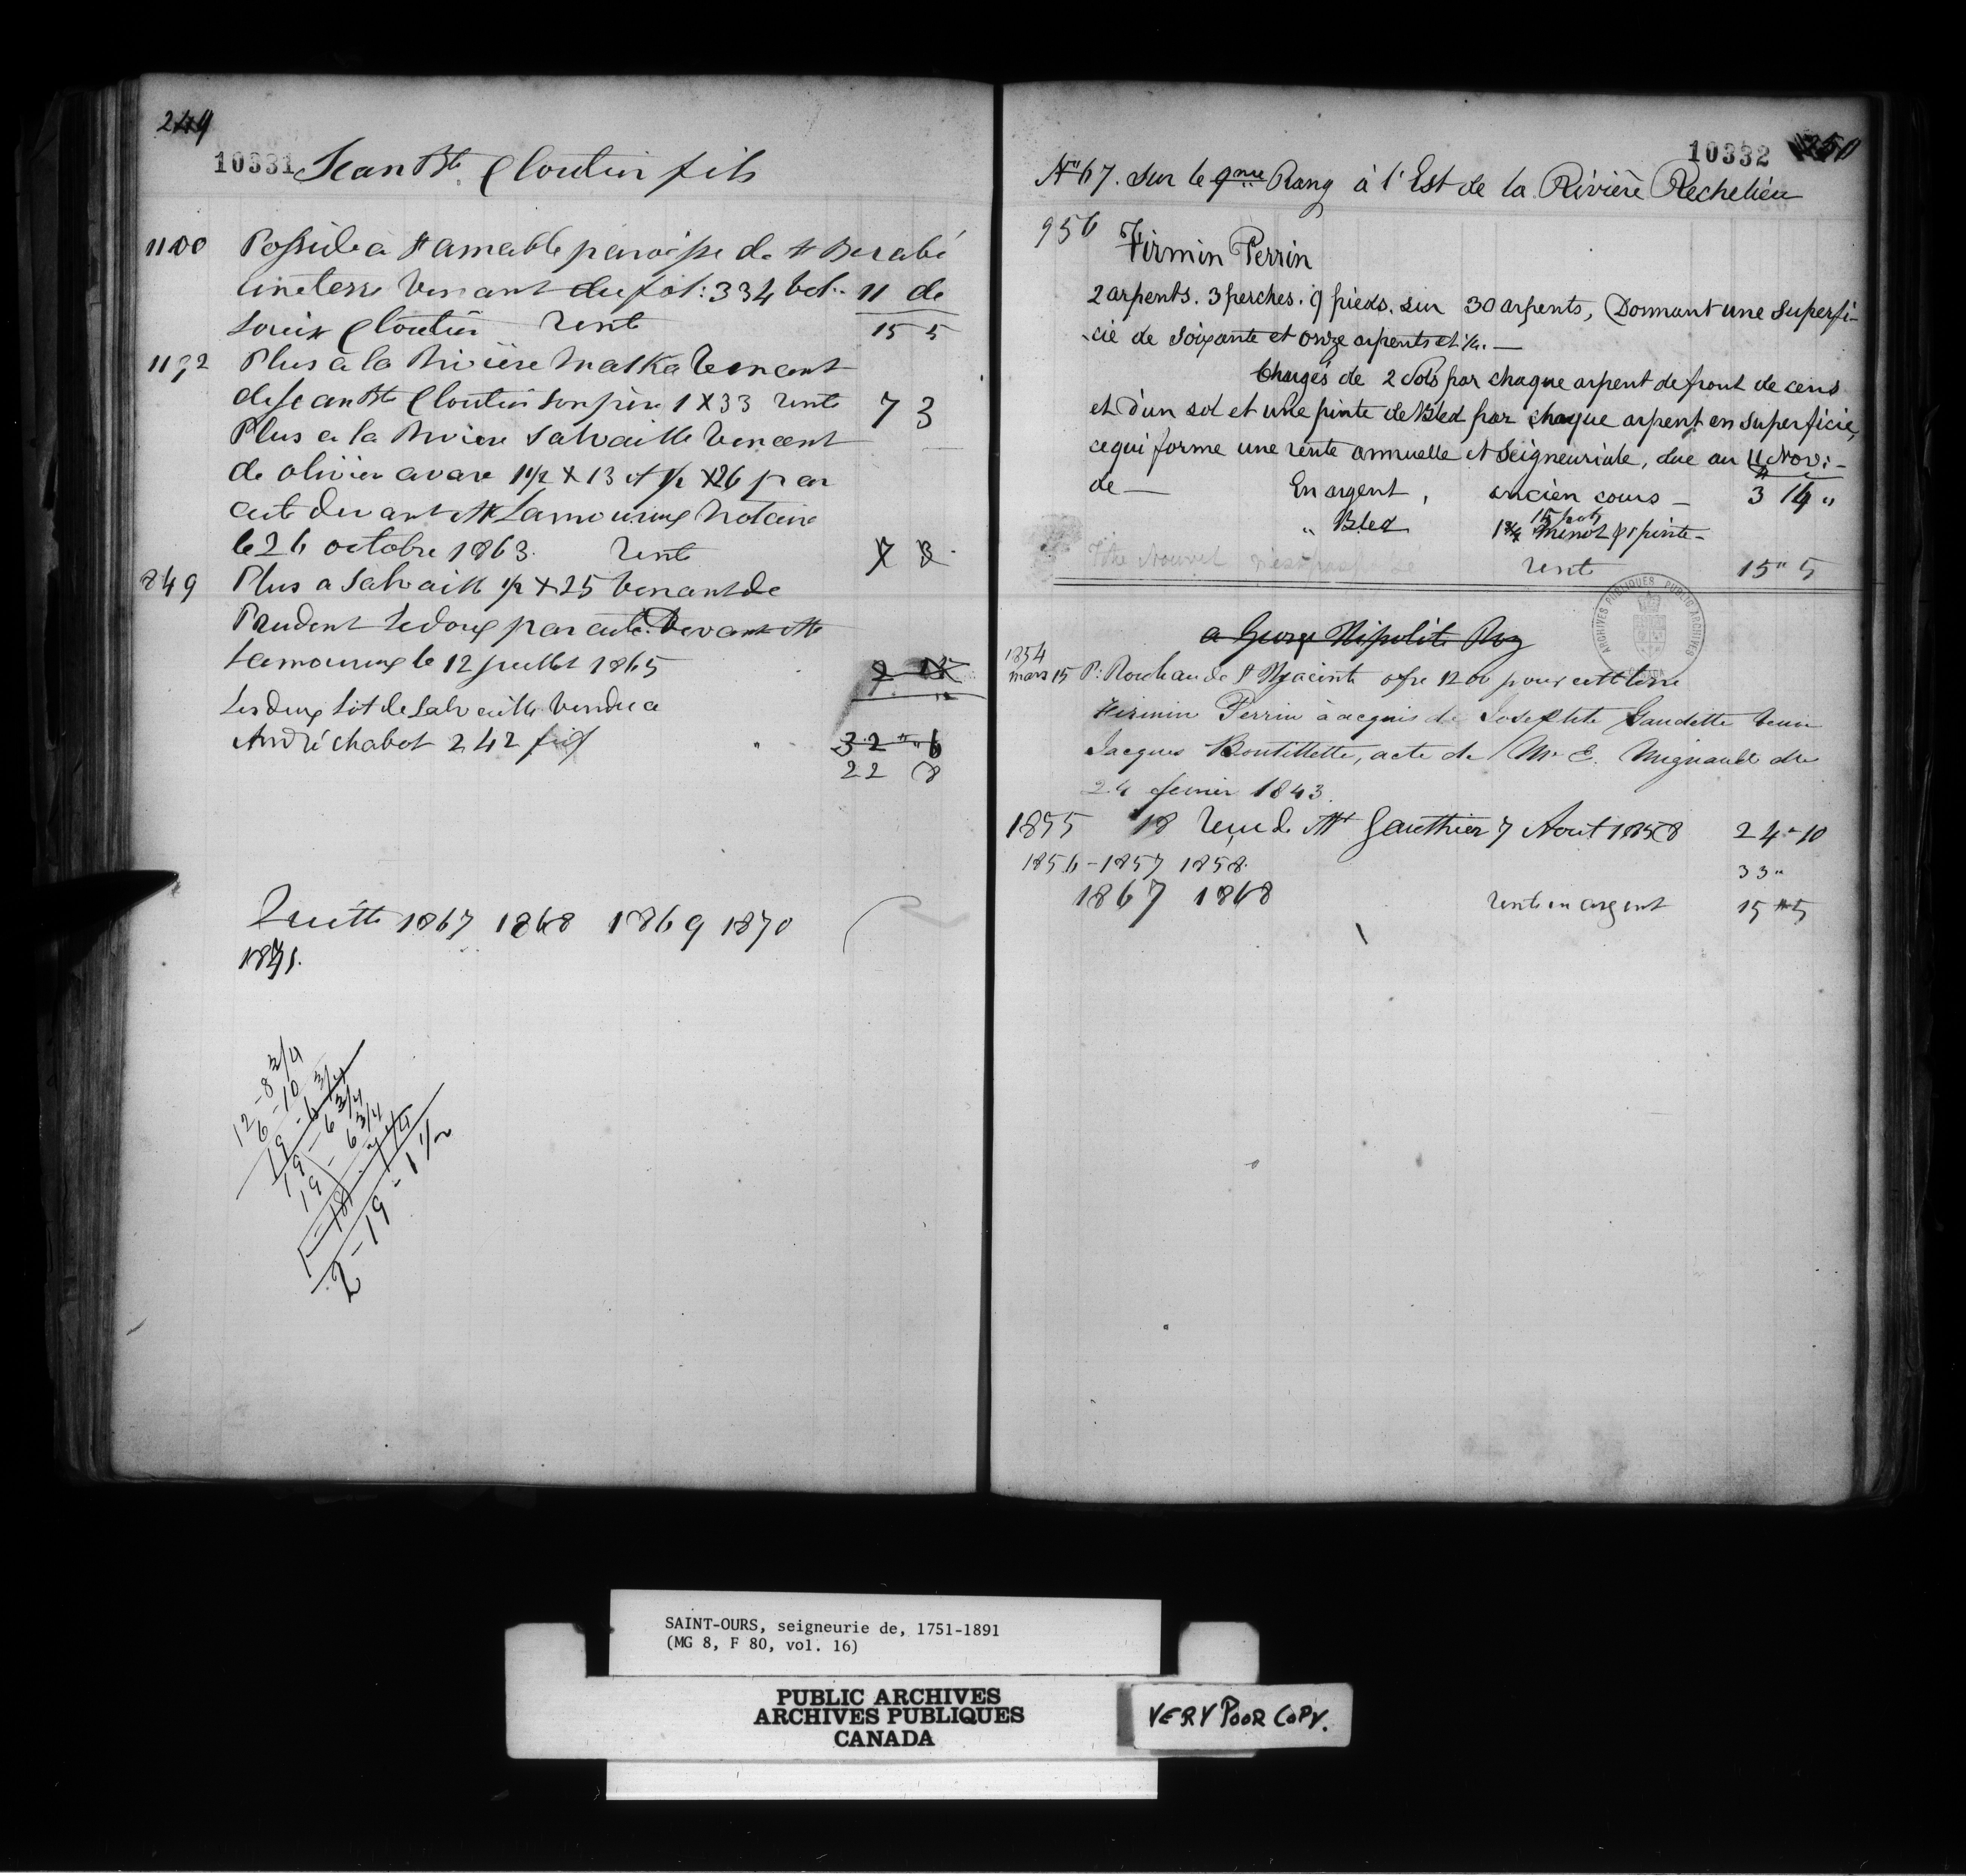 249
10331 Jean Bte Cloutier fils
1100 Posside a St amable paroisse de St Barabé
une terre Venant du fol: 334 vol. 11 de
Louis Cloutier rente 15 5
1192 Plus a la Rivière Maska Venant
de Jean Bte Cloutier son père 1 X 33 rente 7 3
Plus a la Riviere Salvaille Venant
de olivier avare 1 1/2 X 13 et 1/2 X 26 par
acte devant Mtr Lamoureux Notaire
le 26 octobre 1863. rente 7 3
849 Plus a Salvaille 1/2 X 25 Venant de
Prudent Ledoux par acte Devant Mtr
Lamoureux le 12 juillet 1865
Les deux Lot de Salvaille Vendu a
André chabot 242 fol
32 " 6
22 8
Quitte 1867 1868 1869 1870
1871.
12 - 8 3/4
6 - 10
19 - 6 3/4
19 - 6 3/4
19 - 6 3/4
2 - 19 - 1 1/2
10332 250
No 67. Sur le 9me Rang à l'Est de la Rivière Rechelieu
956 Firmin Perrin
2 arpents. 3 perches. 9 pieds. sur 30 arpents, Donnant une Superfi-
-cie de Soixante et onze arpents et 1/4. —
Chargés de 2 Sols par chaque arpent de front de cens
et d'un sol et une pinte de Bled par chaque arpent en superficie,
ce qui forme une rente annuelle et Seigneuriale, due au 11 Nov: -
de — En argent, ancien cours — 3 14 "
" Bled 1 3/4 Minot & 1 pinte -
rente 15 " 5
a George Hipolite Roy
1854
mars 15 P: Rocheau de St Hyacinte ofre 1200 pour cett terre
Firmin Perrin à acquis de Josephte Gaudette Veuve
Jacques Boutillette, acte de Mr E. Mignault du
24 fevrier 1843.
1855 18 recu de Mr Gauthier 7 Aout 1858 24 - 10
1856 - 1857 1858. 33 "
1867 1868 rente en argent 15 " 5
ARCHIVES PUBLIQUES PUBLIC ARCHIVES
SAINT-OURS, seigneurie de, 1751-1891
(MG 8, F 80, vol. 16)
PUBLIC ARCHIVES
ARCHIVES PUBLIQUES
CANADA
VERY POOR COPY.